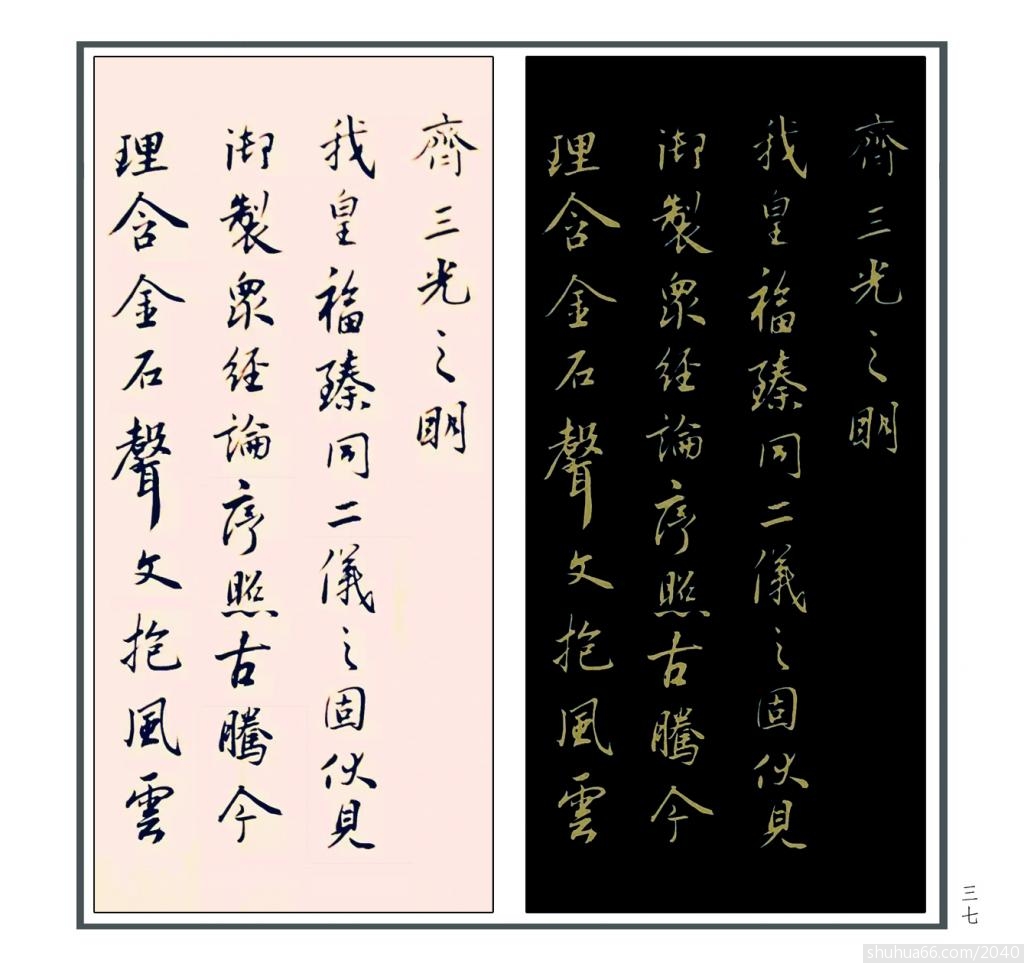 齊三光之明
我皇福臻同二儀之固伏見
御製衆經論序照古騰今
理含金石聲文抱風雲
齊三光之明
我皇福臻同二儀之固伏見
御製衆經論序照古騰今
理含金石聲文抱風雲
三七
shuhua66.com/2040